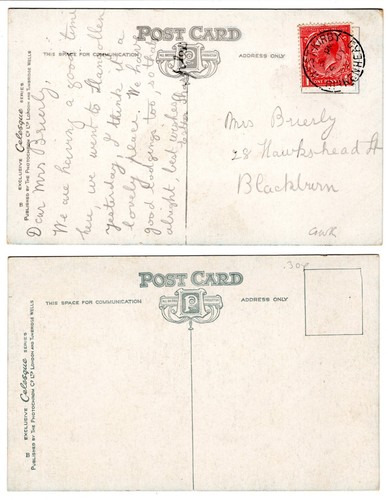 POST CARD
THIS SPACE FOR COMMUNICATION
ADDRESS ONLY
EXCLUSIVE Celesque SERIES
PUBLISHED BY THE PHOTOCHROM CO LTD LONDON AND TUNBRIDGE WELLS
Dear Mrs Brierly,
We are having a good time
here, we went to
Yesterday, I think it's a
lovely place. We have
good lodgings too, so that's
alright, best wishes
Mrs Brierly
28 Hawkshead St
Blackburn
POST CARD
THIS SPACE FOR COMMUNICATION
ADDRESS ONLY
EXCLUSIVE Celesque SERIES
PUBLISHED BY THE PHOTOCHROM CO LTD LONDON AND TUNBRIDGE WELLS